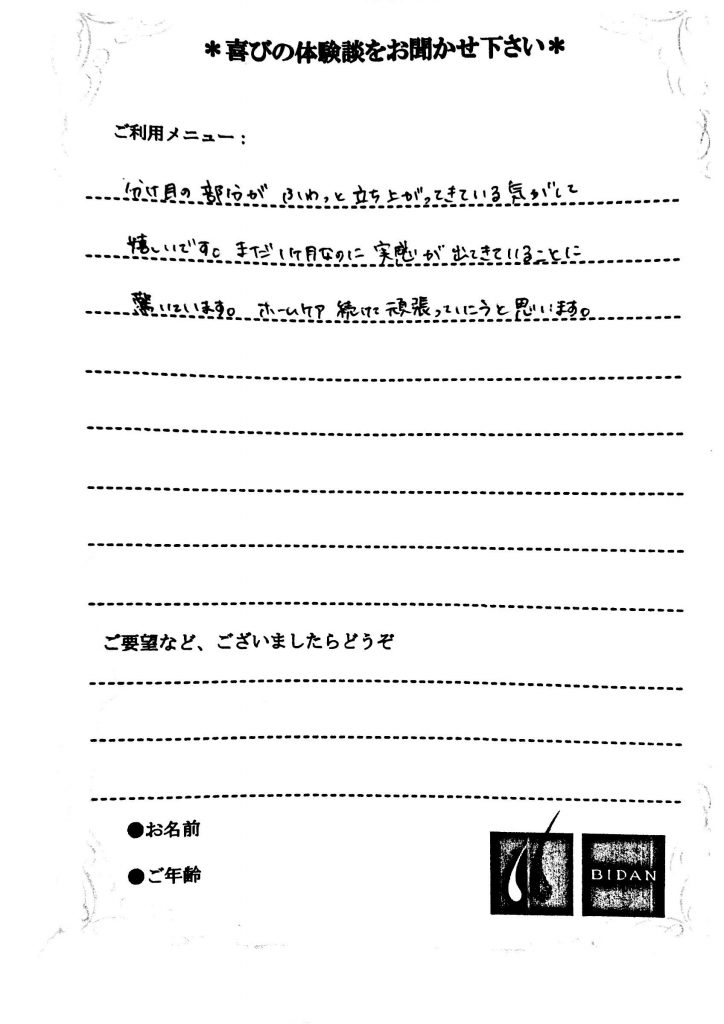 ＊喜びの体験談をお聞かせ下さい＊
ご利用メニュー：
分け目の部分がふわっと立ち上がってきている気がして
嬉しいです。まだ1ヶ月なのに実感が出てきていることに
驚いています。ホームケア続けて頑張っていこうと思います。
ご要望など、ございましたらどうぞ
●お名前
●ご年齢
BIDAN